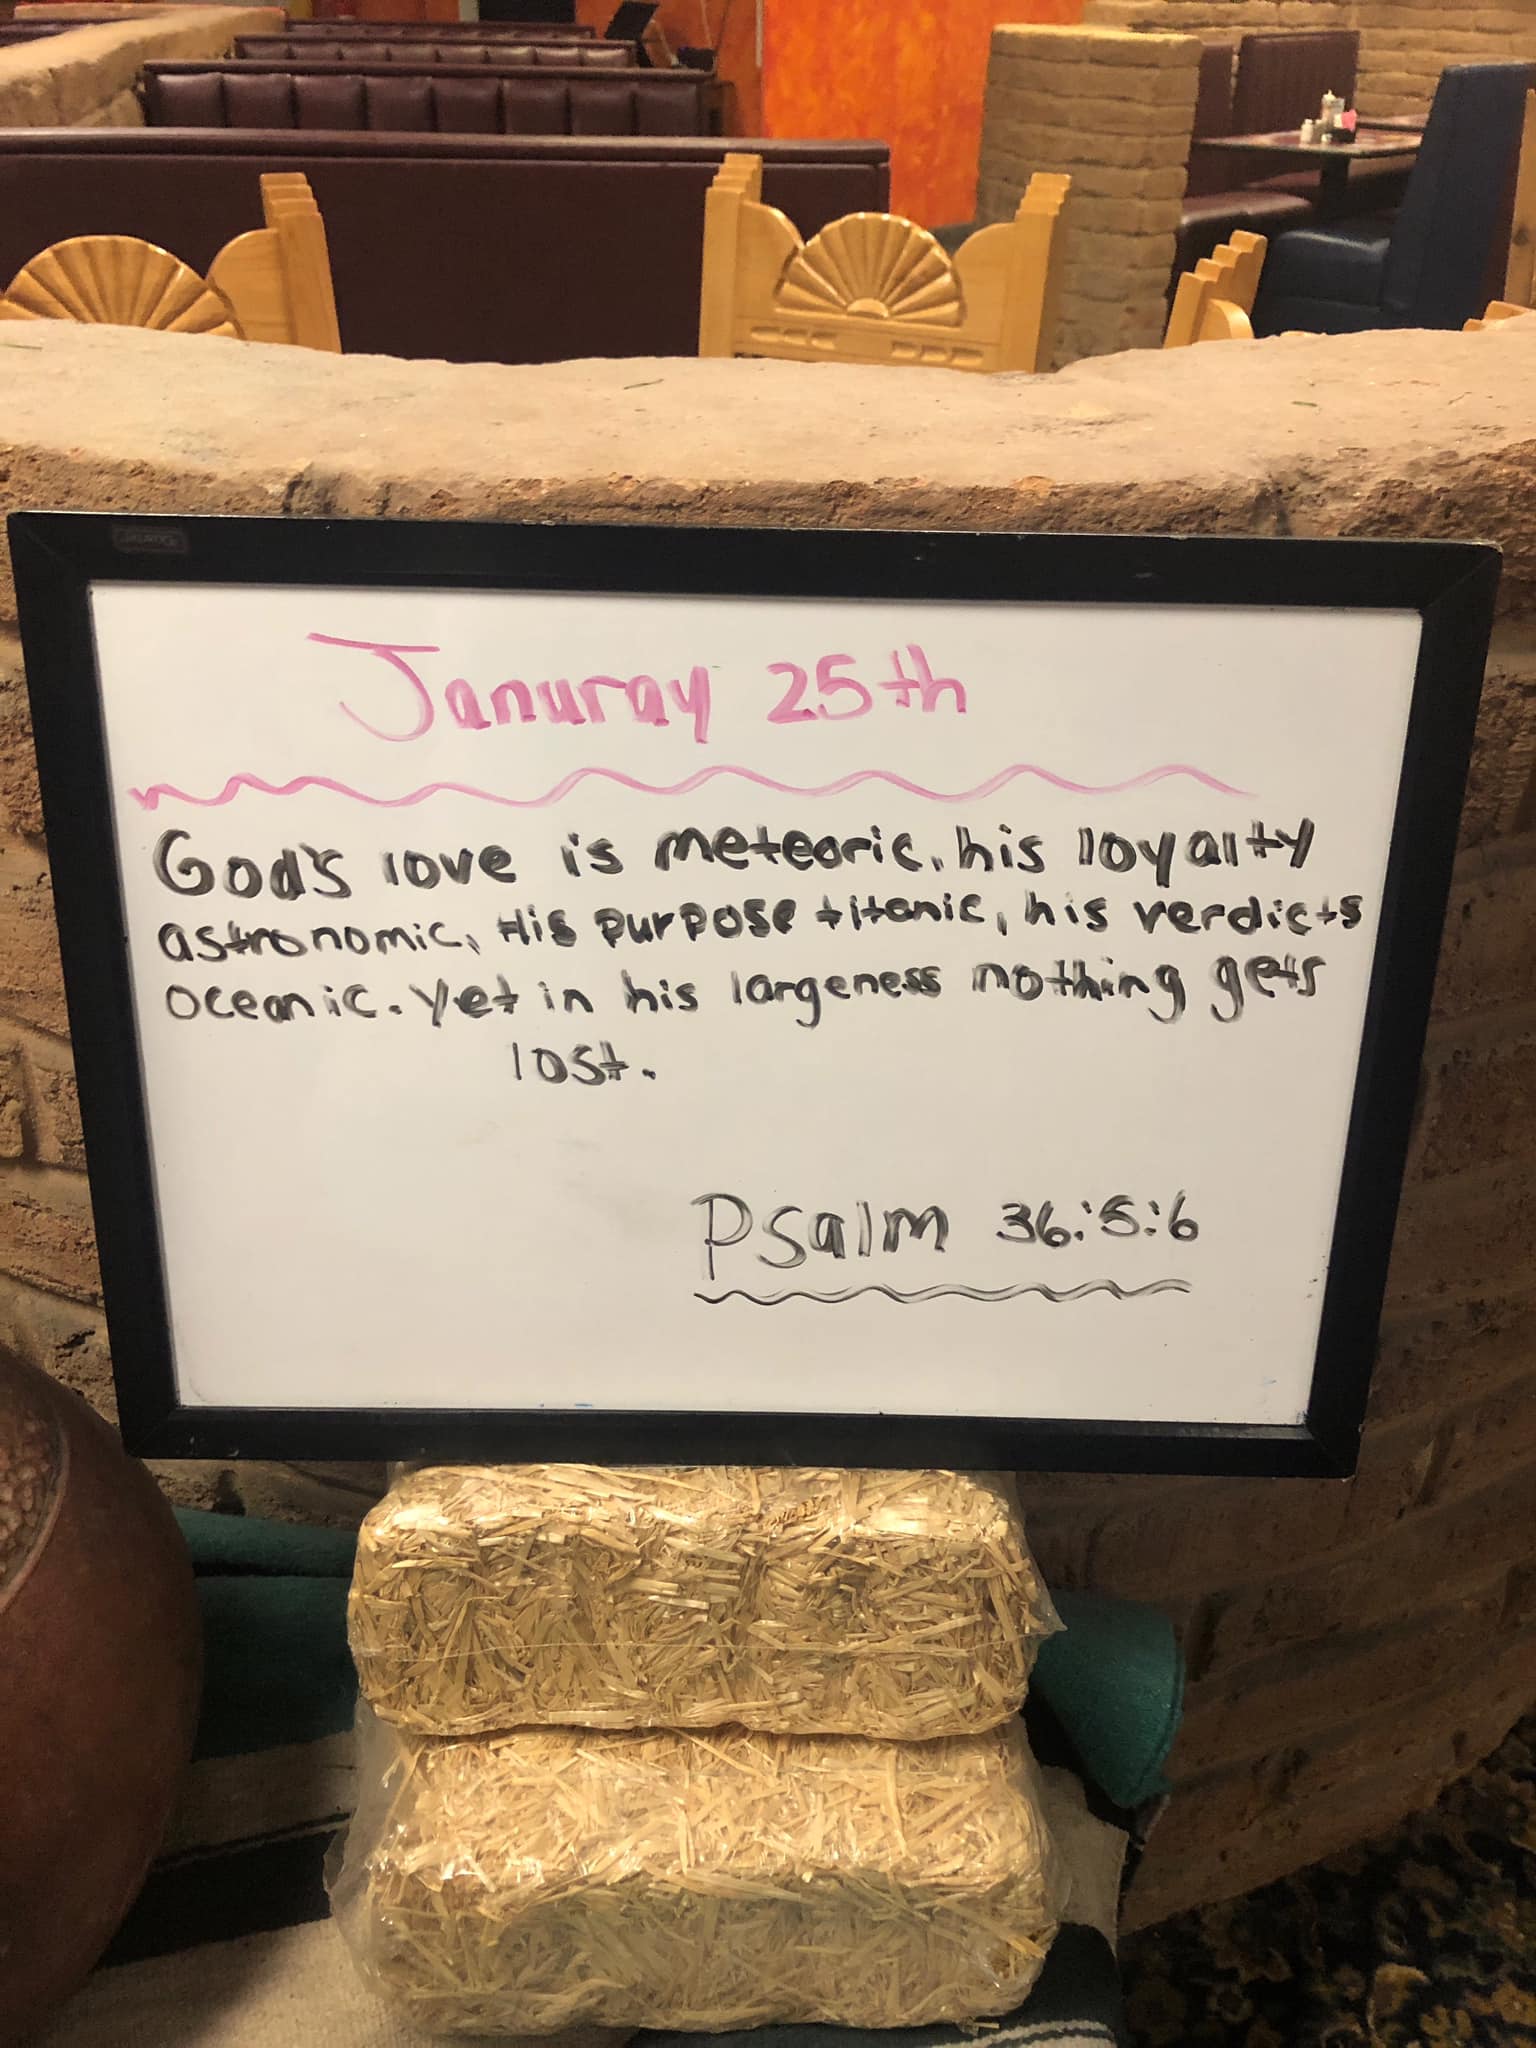 Januray 25th
God's love is meteoric, his loyalty
astronomic, His purpose titanic, his verdicts
oceanic. Yet in his largeness nothing gets
lost.
Psalm 36:5:6